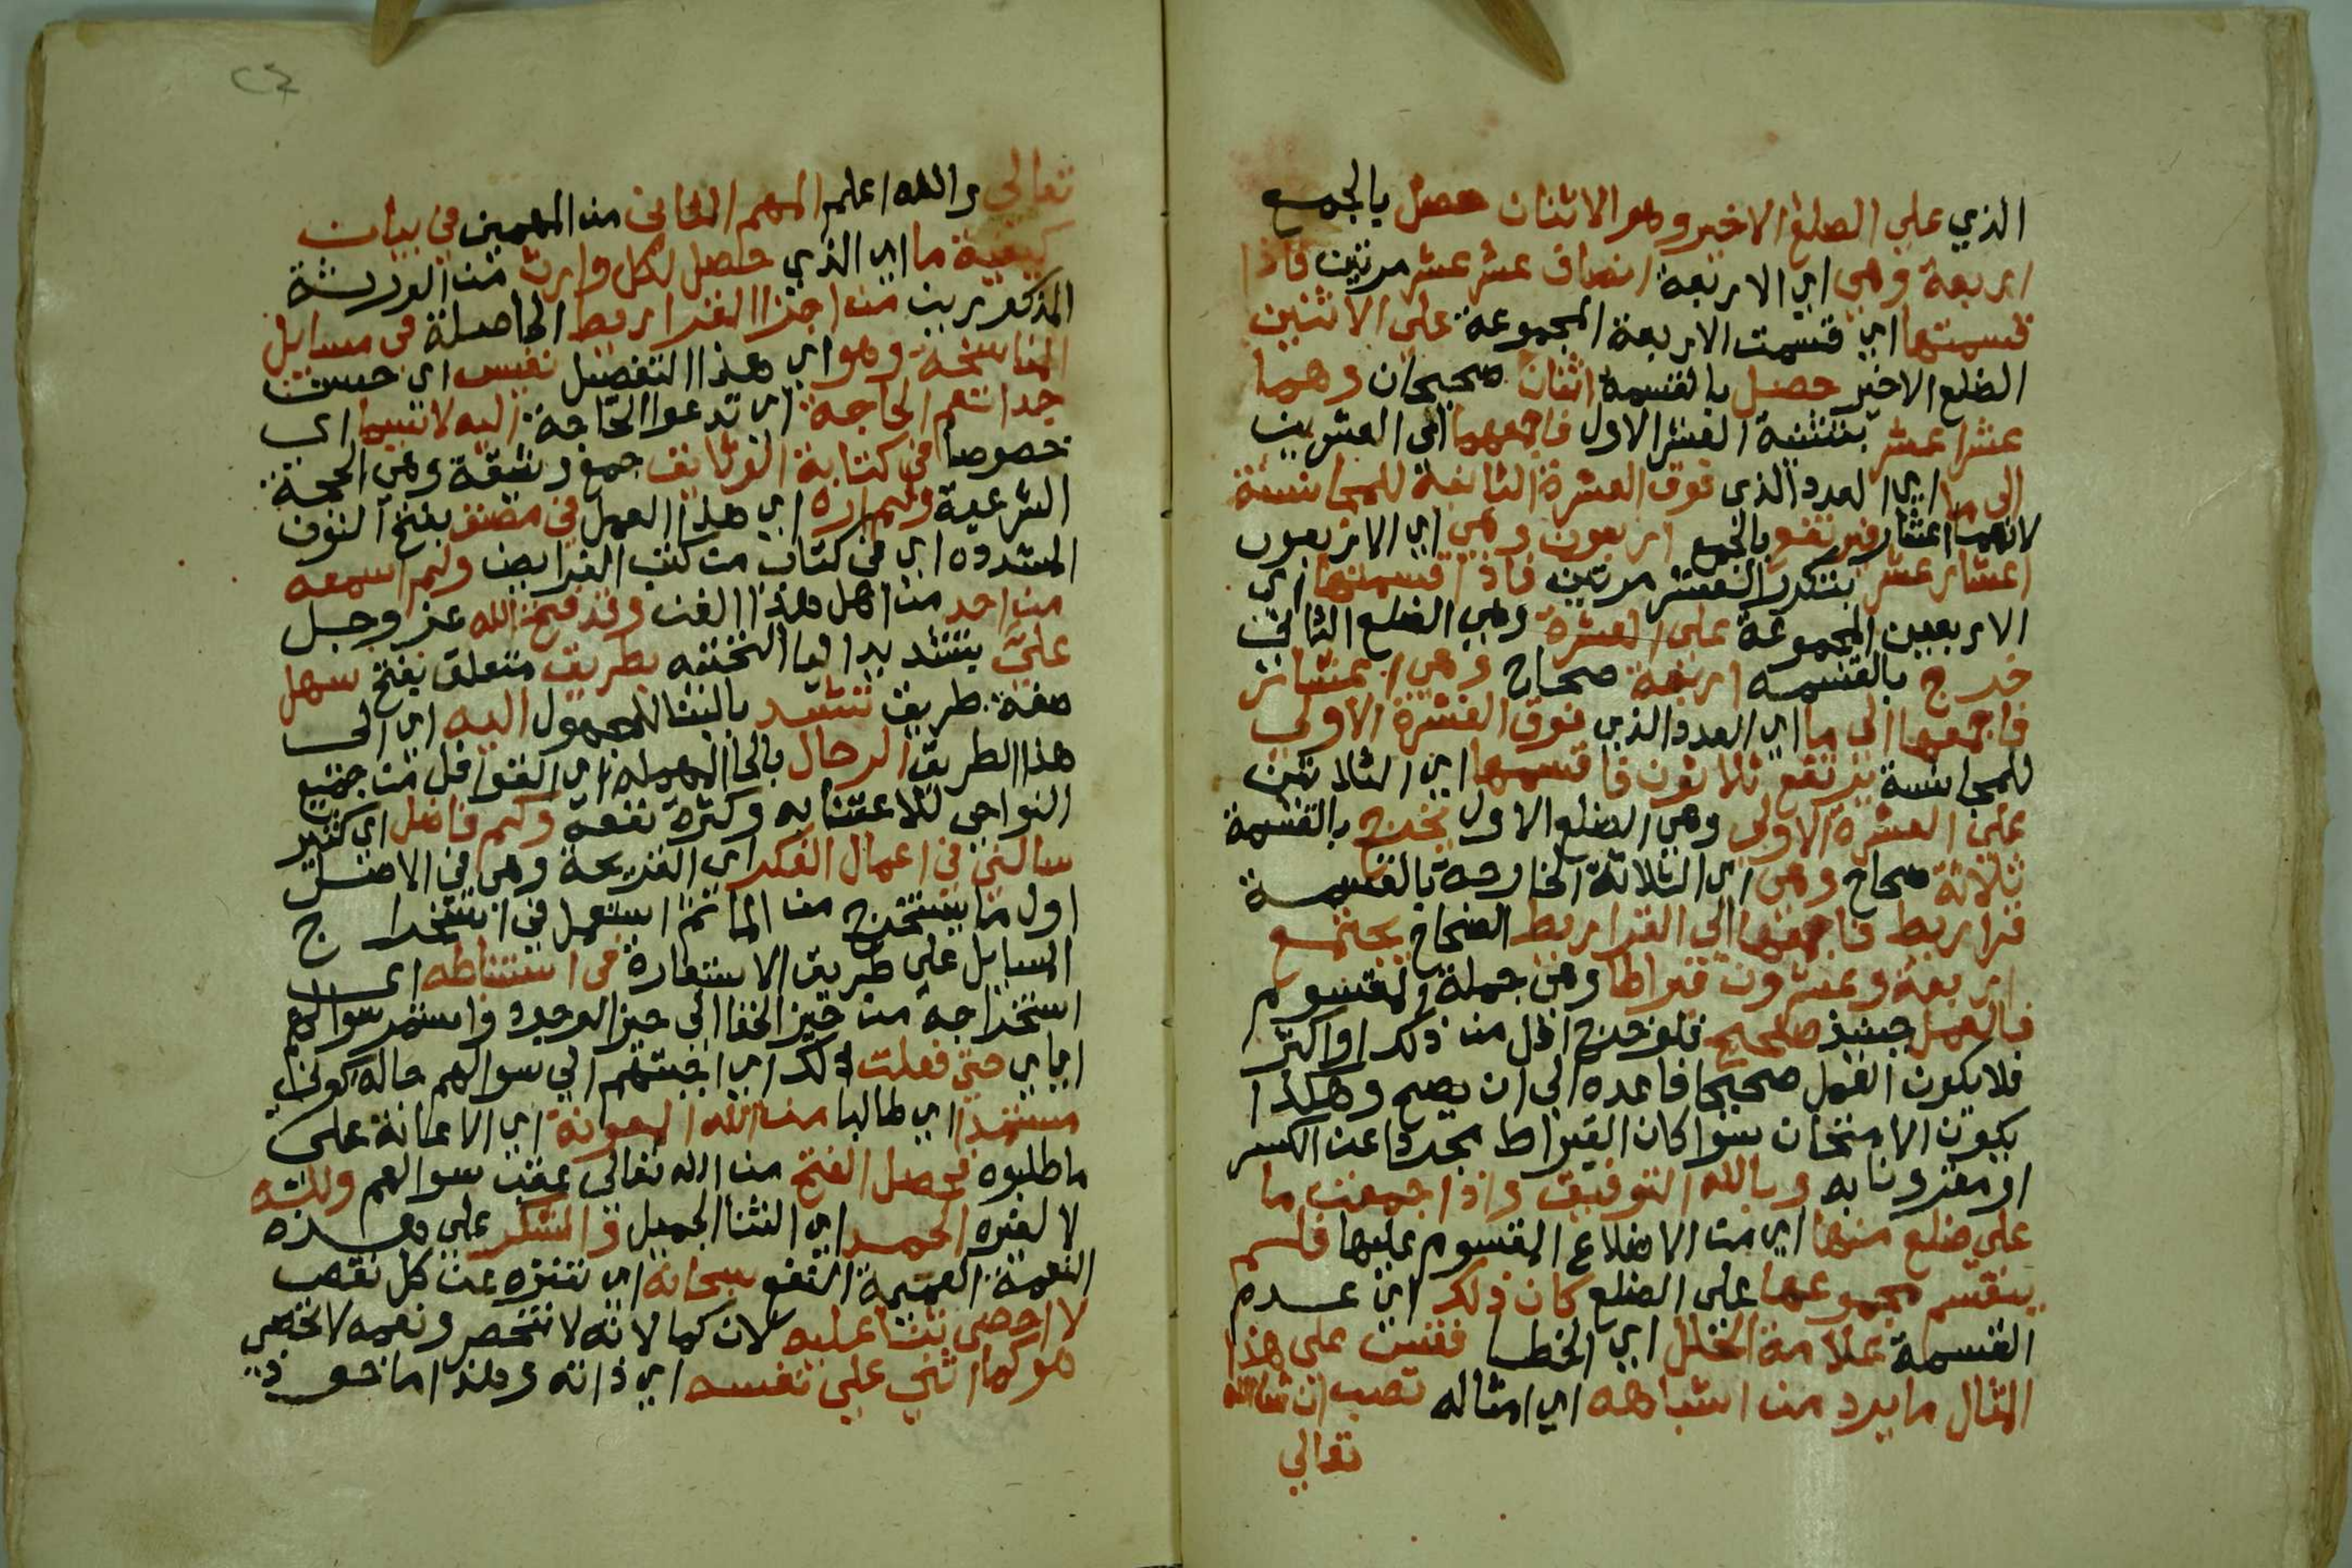 الذي علي الضلع الاخير وهو الاثنان حصل بالجمع
اربعة وهي اي الاربعة انصاف عشر عشر مرتين فاذا
قسمتها اي قسمت الاربعة المجموعة علي الاثنين
الضلع الاخير حصل بالقسمة اثنان صحيحان وهما
عشرا عشر بتثنية العشر الاول فاجمعهما الى العشرين
الى ما اي العدد الذى فوق العشرة الثانية للمجانسة
لانهما اعشار فيرتفع بالجمع اربعون وهي اي الاربعون
اعشار عشر بتكرر العشر مرتين فاذا قسمتها اي
الاربعين المجموعة على العشرة وهي الضلع الثاني
خرج بالقسمه اربعة صحاح وهي اعشار
فاجمعها الى ما اي العدد الذي فوق العشرة الاولي
للمجانسة يرتفع ثلاثون فاقسمها اي الثلاثين
على العشرة الاولي وهي الضلع الاول يخرج بالقسمة
ثلاثة صحاح وهى اي الثلاثة الخارجة بالقسمة
قراريط فاجمعها الي القراريط الصحاح يجتمع
اربعة وعشرون قيراطا وهي جملة المقسوم
فالعمل حينيذ صحيح فلو خرج اقل من ذلك او اكثر
فلا يكون العمل صحيحا فاعده الي ان يصح وهكذا
يكون الامتحان سوا كان القيراط مجردا عن الكسر
او مقرونا به وبالله التوفيق واذا جمعت ما
علي ضلع منها اي من الاضلاع المقسوم عليها فلم
ينقسم مجموعها على الضلع كان ذلك اي عدم
القسمة علامة الخلل اي الخطا فقس على هذا
المثال ما يرد من اشباهه اي امثاله تصب ان شا الله
تعالي
تعالي والله اعلم المهم الثاني من المهمين في بيان
كيفية ما اي الذي حصل لكل وارث من الورثة
المذكورين من اجزا القراريط الحاصلة في مسايل
المناسخة وهو اي هذا التفصيل نفيس اي حسن
جدا تعم الحاجة اي تدعوا الحاجة اليه لاسيما اي
خصوصا في كتابة الوثايق جمع وثيقة وهي الحجة
الشرعية ولم اره اي هذا العمل في مصنف بفتح النون
المشدده اي في كتاب من كتب الفرايض ولم اسمعه
من احد من اهل هذا الفن وقد فتح الله عز وجل
عليّ بتشديد اليا التحتيه بطريق متعلق بفتح سهل
صفة طريق تشد بالبنا للمجهول اليه اي الى
هذا الطريق الرحال بالحا المهمله اي القوافل من جميع
النواحي للاعتنا به وكثرة نفعه وكم فاضل اي كثير
سالني في اعمال الفكر اي القريحة وهي في الاصل
اول ما يستخرج من الما ثم استعمل في استخراج
المسايل على طريق الاستعارة في استنباطه اي
استخراجه من حيز الخفا الى حيز الوجود واستمر سوالهم
اياي حتي فعلت ذلك اي اجبتهم الي سوالهم حالة كوني
مستمدا اي طالبا من الله المعونة اي الاعانة على
ما طلبوه فحصل الفتح من الله تعالى عقب سوالهم ولله
لا لغيره الحمد اي الثنا الجميل والشكر على هذه
النعمة العميمة النفع سبحانه اي تنزه عن كل نقص
لا احصي ثنا عليه لان كمالاته لا تنحصر ونعمه لا تحصي
هو كما اثني علي نفسه اي ذاته وهذا ماخوذ